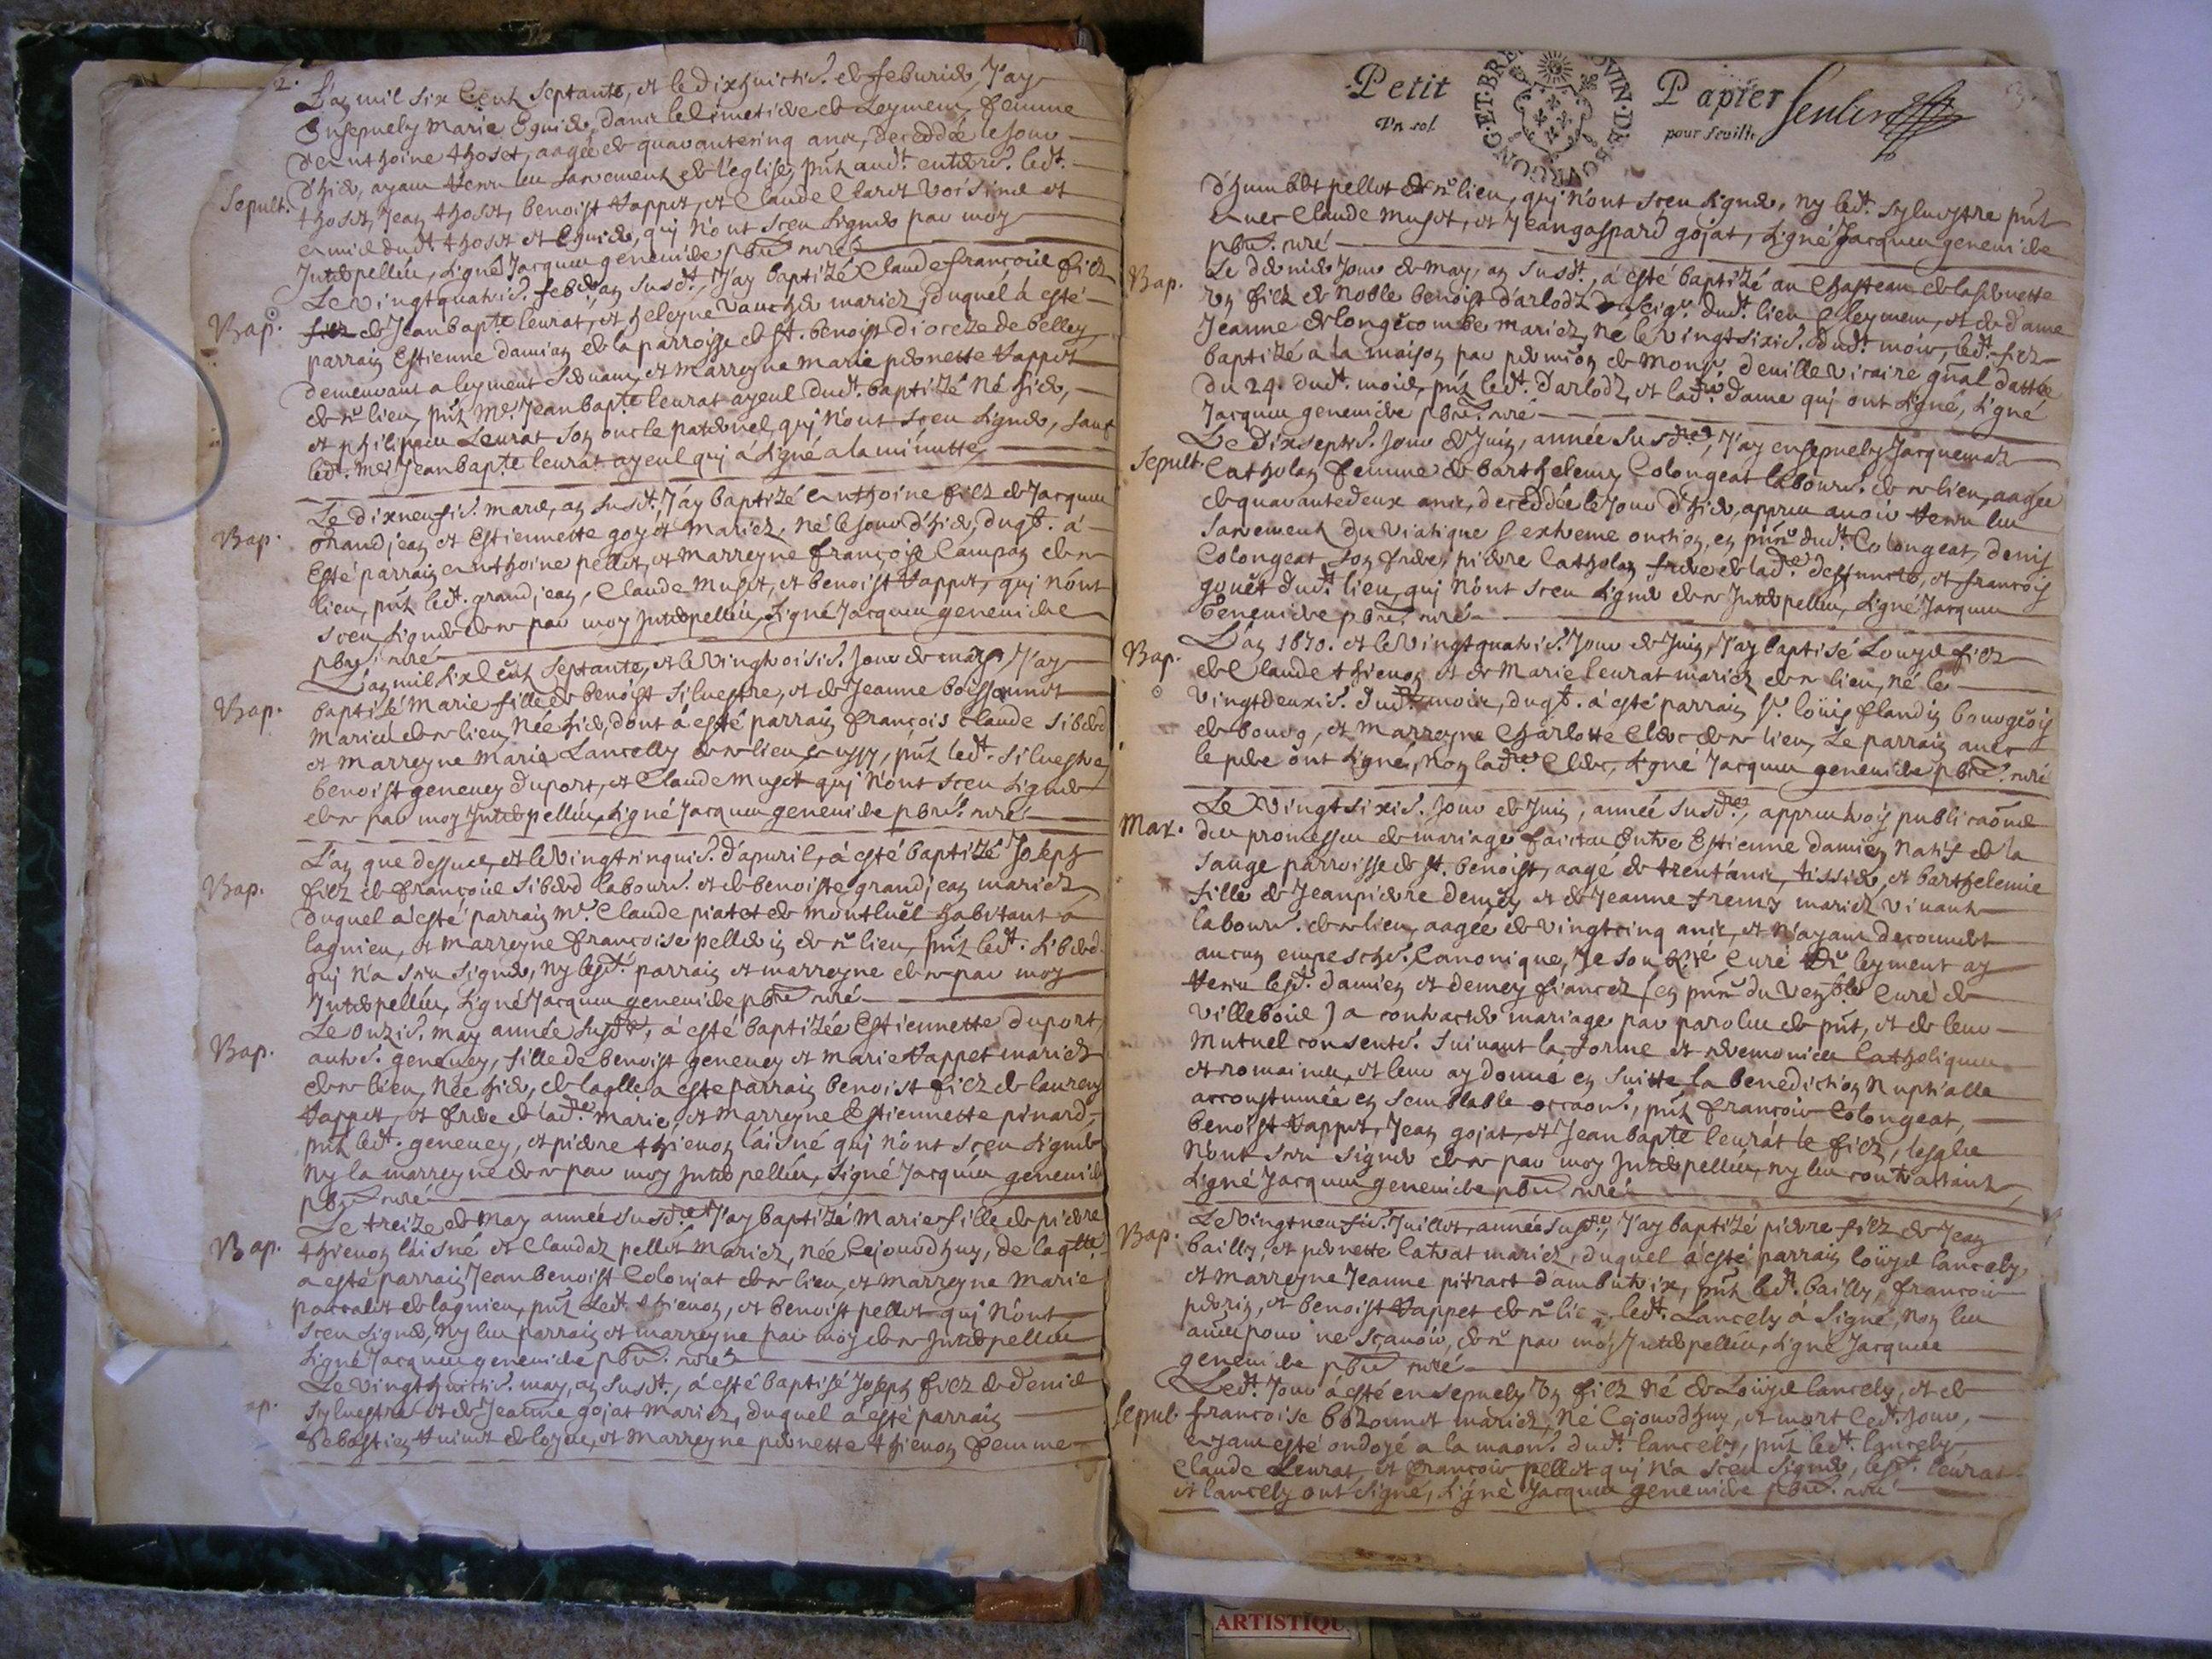 2.
L'an mil six Cent Septante, et le dixhuictie. de feburier, J'ay
Ensepuely Marie Eguier, dans le Cimetiere de Leymen, femme
d'Anthoine thoset, aagée de quarantecinq ans, decedée le Jour
d'hier, ayant Receu les Sacrements de l'eglise, pnt audt. enterrt. ledt.
Sepult. thoset, Jean thoset, benoist Vappet, et Claude Claret Voisins et
amis dudt. thoset et Eguier, qui N'ont sceu Signer par moy
Interpellés, Signé Jacques geneuiere pbre curé
Le vingtquatrie. feber, an susdt., J'ay baptizé Claude françois filz
Bap. filz de Jean bapte. leurat, et heleyne Vaucher mariez, duquel á esté
parrain Estienne damian de la parroisse de St. benoist dioceze de belley
demeurant a leyment Seruant, et Marreyne Marie pernette Vappet
de ce lieu, pnt Me. Jean bapte. leurat ayeul dudt. baptizé Né hier,
et philippes Leurat Son oncle paternel, qui N'ont Sceu Signer, Sauf
ledt. Me. Jean bapte. leurat ayeul qui á Signé a la minutte
Le dixneufie. Mars, an susdt. J'ay baptizé anthoine filz de Jacques
Bap. Grandjean et Estiennette goyet Mariez, Né le Jour d'hier, duqt. á
Esté parrain anthoine pellet, et Marreyne françoise Campan de ce
lieu, pnt ledt. grandjean, Claude Muset, et benoist Vappet, qui N'ont
Sceu Signer de ce par moy Interpellés, Signé Jacques geneuiere
pbre. curé
L'an mil Six Cent Septante, et le Vingtroisie. Jour de mars, J'ay
Bap. baptisé Marie fille de benoist Siluestre, et de Jeanne boissonnet
Mariés de ce lieu, Née hier, dont á esté parrain françois Claude Siberd
et Marreyne Marie Lancelly de ce lieu aussy, pnt ledt. Siluestre,
benoist geneuey Duport, et Claude Muset qui N'ont Sceu Signer
de ce par moy Interpellés, Signé Jacques geneuiere pbre. curé
L'an que dessus, et le Vingtcinquie. d'apuril, á esté baptizé Joseph
Bap. filz de françois Siberd labourr. et de benoiste grandjean mariez
duquel á esté parrain Mr. Claude piatet de montluel habitant a
lagnieu, et Marreyne françoise pellerin de ce lieu, pnt ledt. Siberd
qui N'a Sceu Signer, Ny lesdt. parrain et marreyne de ce par moy
Interpellés, Signé Jacques geneuiere pbre curé
Le Onzie. May année susdte., á esté baptizée Estiennette duport,
Bap. autrt. geneuey, fille de benoist geneuey et Marie Vappet mariez
de ce lieu, Née hier, de laqlle. a esté parrain benoist filz de laurens
Vappet, et frere de ladte. Marie, et Marreyne Estiennette pinard,
pnt ledt. geneuey, et pierre thieuon l'aisné qui N'ont Sceu Signer
Ny la marreyne de ce par moy Interpellés, Signé Jacques geneuiere
pbre curé
Le treize de May année susdte. J'ay baptizé Marie fille de pierre
Bap. thieuon láisné et Claudaz pellet Mariez, Née Cejourdhuy, de laqtte.
a esté parrain Jean benoist Colonjat de ce lieu, et Marreyne Marie
paccalet de lagnieu, pnt Ledt. thieuon, et benoist pellet qui N'ont
Sceu Signer, Ny les parrain et marreyne par moy de ce Interpellés
Signé Jacques geneuiere pbre. curé
Le Vingthuictie. may, an Susdt., á esté baptisé Joseph filz de denis
ap. Syluestre et de Jeanne gojat Mariez, duquel á esté parrain
Sebastien Vuinet de loyes, et Marreyne pernette thieuon femme
Petit Papier
Vn sol pour feuille
BOVRGONG. ET BRE
d'humbert pellet de ce lieu, qui N'ont Sceu Signer, Ny ledt. Syluestre pnt
auec Claude Muset, et Jean gaspard gojat, Signé Jacques geneuiere
pbre. curé
Bap. Le dernier Jour de May, an susdt., á esté baptizé au Chasteau de la seruette
Vn filz de Noble benoist d'arlodz Seigr. dudt. lieu & leymen, et de dame
Jeanne de longecombe mariez, Né le Vingtsixie. dudt. mois, ledt. filz
baptizé a la maison par permion de Monsr. deuille Vicaire gnal datteé
du 24. dudt. mois, pnt ledt. d'arlodz, et ladte. dame qui ont Signé, Signé
Jacques geneuiere pbre. curé
Le dixseptie. Jour de Juin, année susdte., J'ay ensepuely Jacquemaz
Sepult. Catholan femme de barthelemy Colongeat labourr. de ce lieu, aagée
de quarantedeux ans, decedée le Jour d'hier, appres auoir Receu les
Sacrements du Viatique & extreme onction, en pnce dudt. Colongeat, denis
Colongeat son frere, pierre Catholan frere de ladte. deffuncte, et françois
gouet dudt. lieu, qui N'ont Sceu Signer de ce Interpellés, Signé Jacques
Geneuiere pbre. curé
Bap. L'an 1670. et le Vingtquatrie. Jour de Juin, J'ay baptisé Louys filz
de Claude thieuon et de Marie leurat mariez de ce lieu, né le
Vingtdeuxie. dudt. mois, duqt. á esté parrain Sr. loüis flandin bourgeois
de bourg, et Marreyne Charlotte Clerc de ce lieu, Le parrain auec
le pere ont Signé, Non ladte. Clerc, Signé Jacques geneuiere pbre. curé
Le Vingtsixie. Jour de Juin, année susdte., appres trois publicaons
Mar. des promesses de mariage faictes Entre Estienne damien Natif de la
Sauge parroisse de St. benoist, aagé de trent'ans, tissier, et barthelemie
fille de Jean pierre demey et de Jeanne tremy mariez Viuants
labourr. de ce lieu, aagée de Vingtcinq ans, et N'ayant decouuert
aucun empescht. Canonique, Je soubzné Curé de leyment ay
Receu lesdt. damien et demey fiancez (en pnce du Venble Curé de
Villebois) a contracter mariage par parolles de pnt, et de leur
Mutuel consentt. Suiuant la forme et ceremonies Catholiques
et romaines, et leur ay donné en Suitte la benediction Nuptialle
accoustumée en Semblable occaon., pnt françois Colongeat,
benoist Vappet, Jean gojat, et Jean bapte leurat le filz, lesqls
N'ont Sceu Signer de ce par moy Interpellés, ny les contractants,
Signé Jacques geneuiere pbre curé
Le Vingtneufie. Juillet, année susdte, J'ay baptizé pierre filz de Jean
Bap. bailly, et pernette latrat mariez, duquel á esté parrain loüys lancely,
et Marreyne Jeanne pitract d'ambutrix, pnt ledt. bailly, françois
perrin, et benoist Vappet de ce lieu ledt. Lancely á Signé, Non les
aues pour ne sçauoir, de ce par moy Interpellés, Signé Jacques
geneuiere pbre curé
Ledt. Jour á esté ensepuely Vn filz Né de Loüys lancely, et de
Sepul. francoise bozonnet mariez, Né Cejourdhuy, et mort ledt. Jour,
ayant esté ondoyé a la maon. dudt. lancely, pnt ledt. lancely,
Claude Leurat, et françois pellet qui N'a Sceu Signer, lesdt. leurat
et lancely ont Signé, Signé Jacques geneuiere pbre. curé
ARTISTIQU